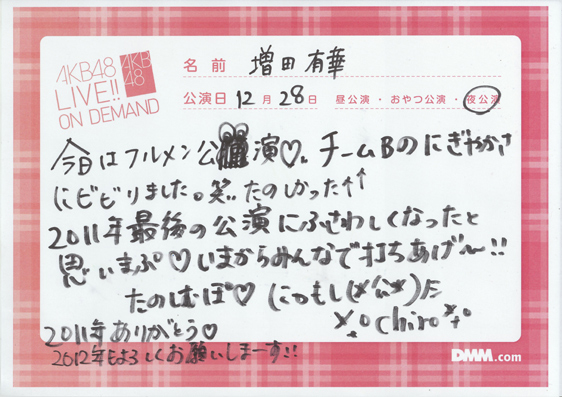 AKB48
LIVE!!
ON DEMAND
AKB
48
名前 増田有華
公演日 12月28日 昼公演・おやつ公演・夜公演
今日はフルメン公演♡。チームBのにぎやかさ
にビビりました。笑!! たのしかった↑↑
2011年最後の公演にふさわしくなったと
思いまぷ♡いまからみんなで打ちあげ〜!!
たのしむぽ♡
chiro
2011年ありがとう♡
2012年もよろしくお願いしまーす!!
DMM.com